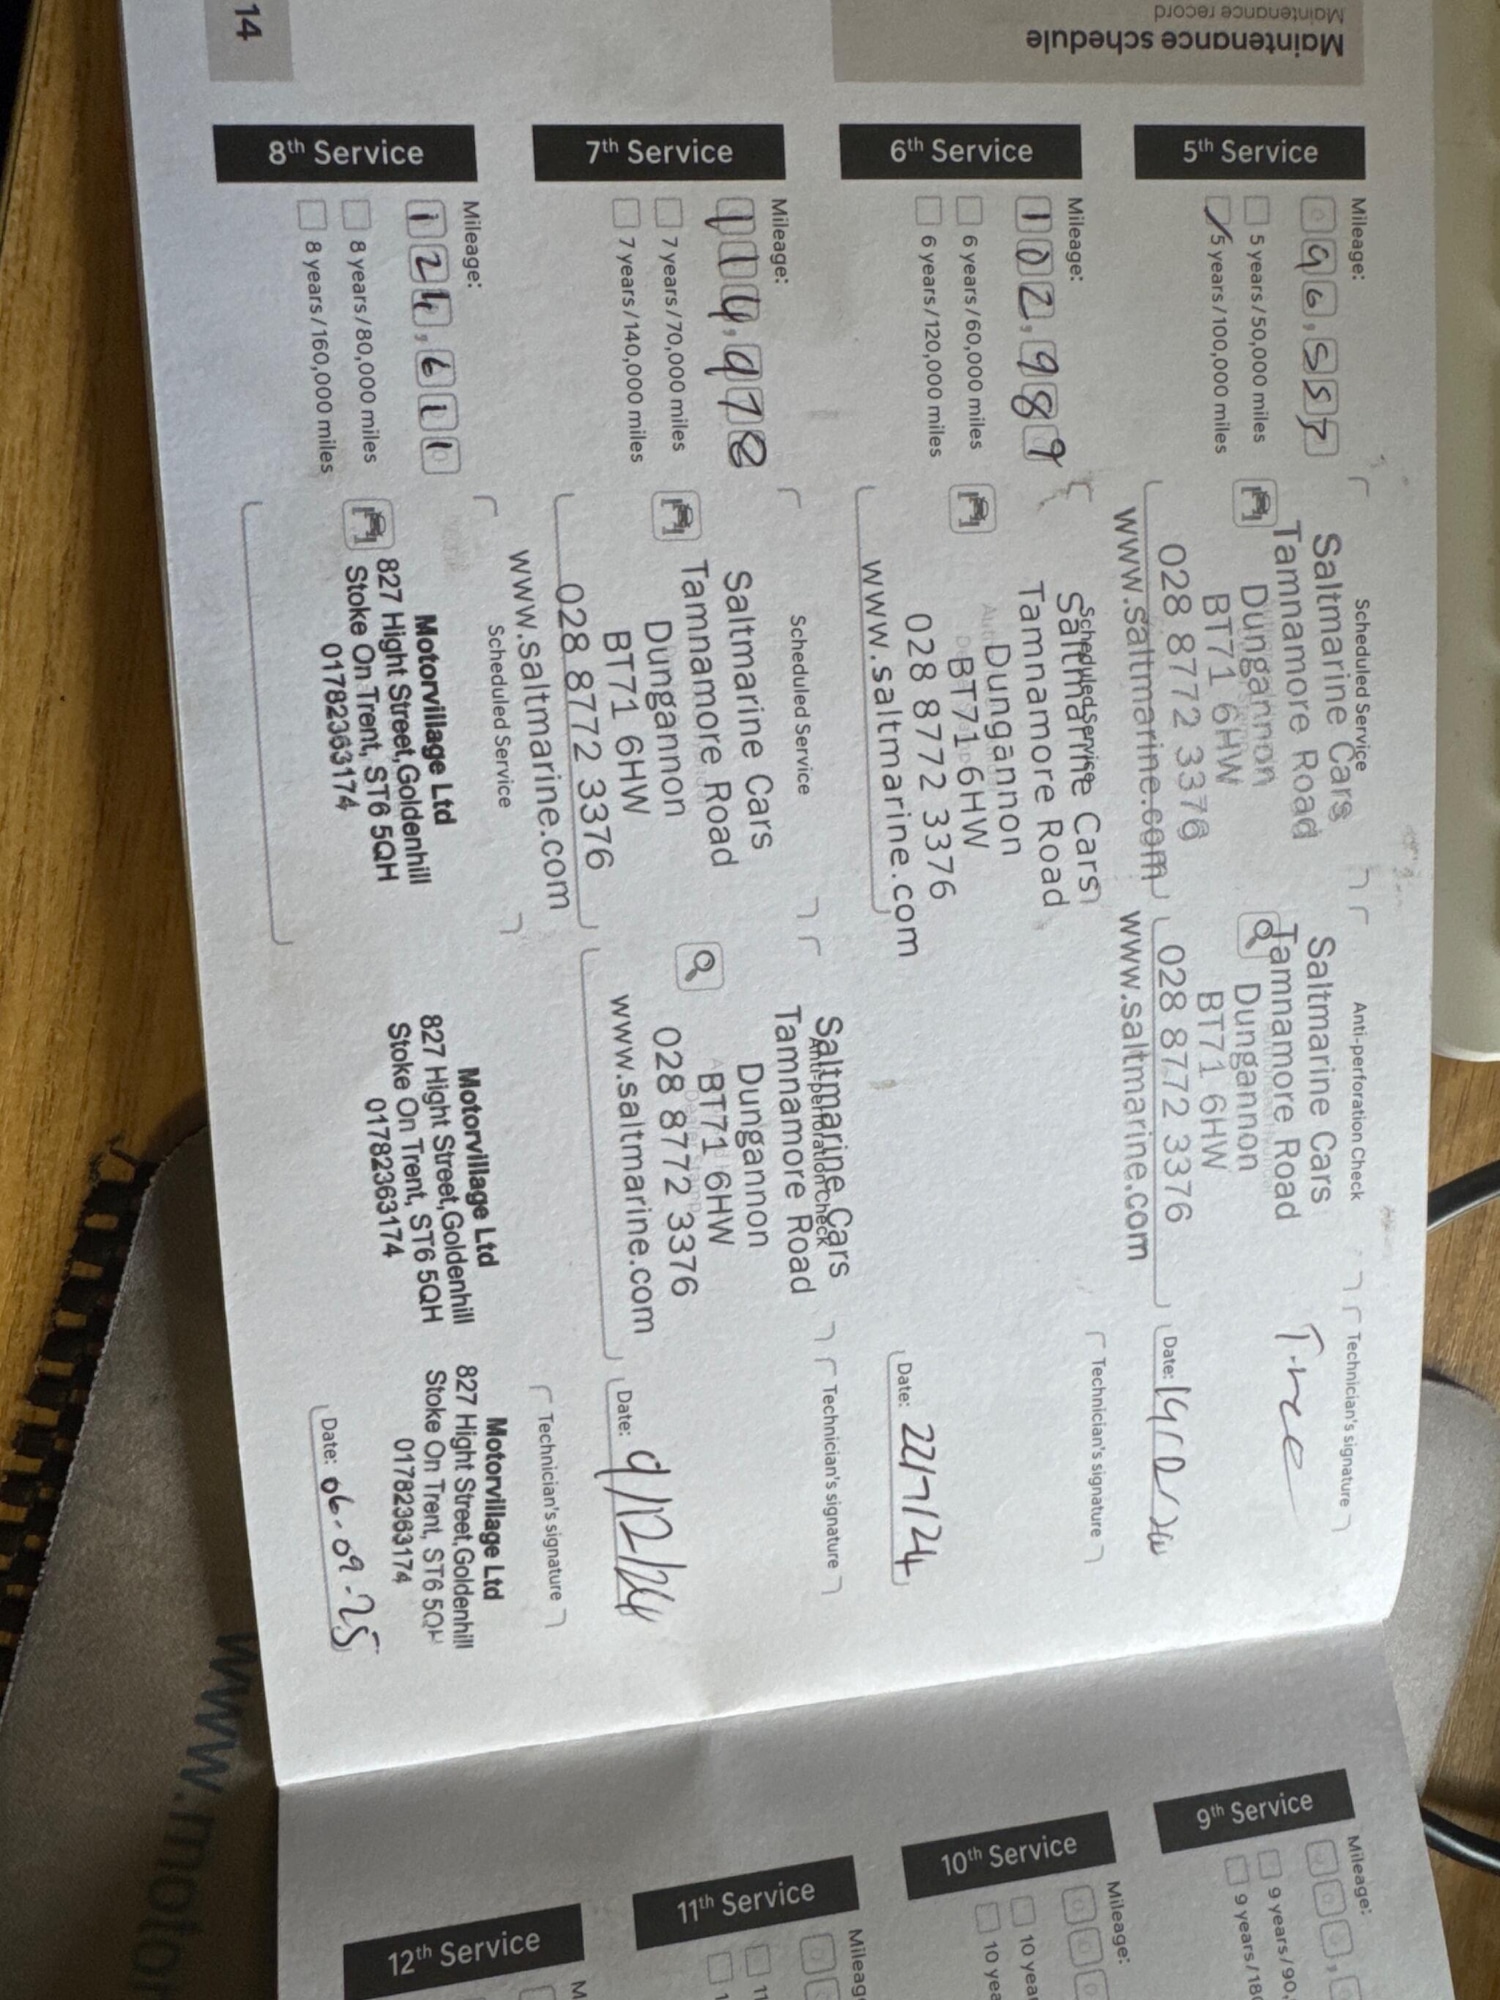 Maintenance schedule
Maintenance record
5th Service
Mileage:
096,557
5 years/50,000 miles
5 years/100,000 miles
Scheduled Service
Saltmarine Cars
Tamnamore Road
Dungannon
BT71 6HW
028 8772 3376
www.saltmarine.com
Anti-perforation Check
Saltmarine Cars
Tamnamore Road
Dungannon
BT71 6HW
028 8772 3376
www.saltmarine.com
Technician's signature
Date:
6th Service
Mileage:
102,989
6 years/60,000 miles
6 years/120,000 miles
Scheduled Service
Saltmarine Cars
Tamnamore Road
Dungannon
BT71 6HW
028 8772 3376
www.saltmarine.com
Technician's signature
Date: 22/7/24
7th Service
Mileage:
114,978
7 years/70,000 miles
7 years/140,000 miles
Scheduled Service
Saltmarine Cars
Tamnamore Road
Dungannon
BT71 6HW
028 8772 3376
www.saltmarine.com
Anti-perforation Check
Saltmarine Cars
Tamnamore Road
Dungannon
BT71 6HW
028 8772 3376
www.saltmarine.com
Technician's signature
Date: 9/12/24
8th Service
Mileage:
124,611
8 years/80,000 miles
8 years/160,000 miles
Scheduled Service
Motorvillage Ltd
827 Hight Street, Goldenhill
Stoke On Trent, ST6 5QH
01782363174
Motorvillage Ltd
827 Hight Street, Goldenhill
Stoke On Trent, ST6 5QH
01782363174
Technician's signature
Motorvillage Ltd
827 Hight Street, Goldenhill
Stoke On Trent, ST6 5QH
01782363174
Date: 06-09-25
14
9th Service
Mileage:
9 years/90,
9 years/180
10th Service
Mileage:
10 year
10 yea
11th Service
Mileag
11
12th Service
M
www.motor